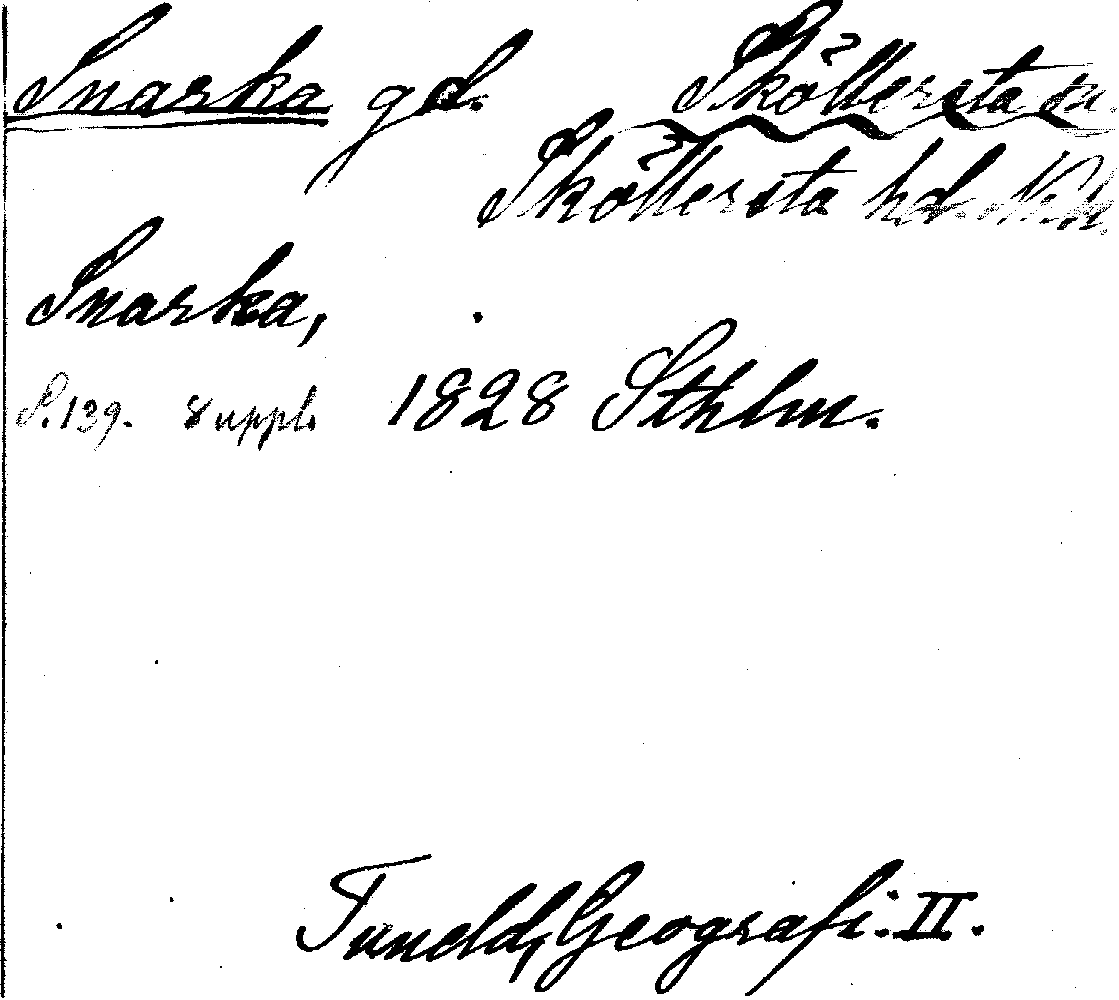 Snarka gd. Sköllersta sn.
Sköllersta hd. N.ke.
Snarka,
S. 139. suppl. 1828 Sthlm.
Tuneld, Geografi. II.